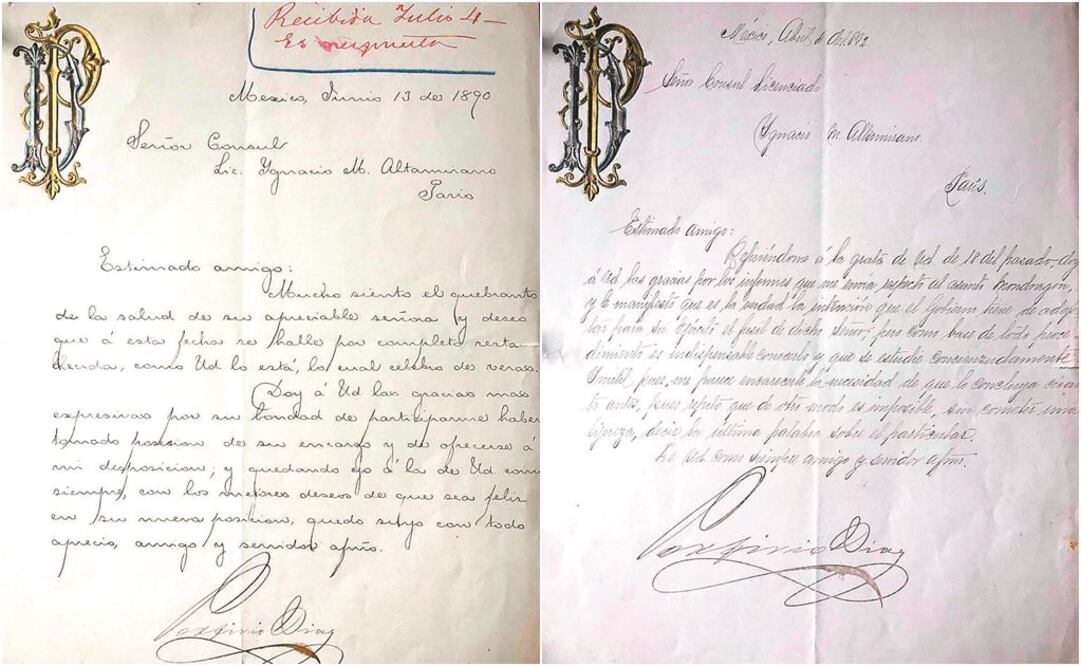 Recibida Julio 4-
Es respuesta
Mexico, Junio 13 de 1890
Señor Consul
Lic. Ygnacio M. Altamirano
Paris
Estimado amigo:
Mucho siento el quebranto
de la salud de su apreciable señora y deseo
que á esta fecha se halle por completo resta-
blecida, como Ud lo está, lo cual celebro de veras.
Doy á Ud las gracias mas
expresivas por su bondad de participarme haber
tomado posesion de su encargo y de ofrecerse á
mi disposicion; y quedando yo á la de Ud como
siempre, con los mejores deseos de que sea feliz
en su nueva posicion, quedo suyo con todo
aprecio, amigo y servidor afmo.
Porfirio Diaz
México, Abril de 1892
Señor Consul Licenciado
Ygnacio M. Altamirano
Paris.
Estimado amigo:
Refiriéndome á la grata de Ud de 18 del pasado, doy
á Ud las gracias por los informes que me envia respecto al asunto Mondragón,
y le manifesto que es la verdad la intención que el Gobierno tiene de adop-
tar para su Ejército el fusil de dicho Señor; pero como base de todo proce-
dimiento es indispensable conocerlo y que se estudie concienzudamente.
Inútil pues, me parece encarecerle la necesidad de que lo concluya cuan-
to antes, pues reputo que de otro modo es imposible, sin cometer una
ligereza, decir la última palabra sobre el particular.
De Ud como siempre amigo y servidor afmo.
Porfirio Diaz